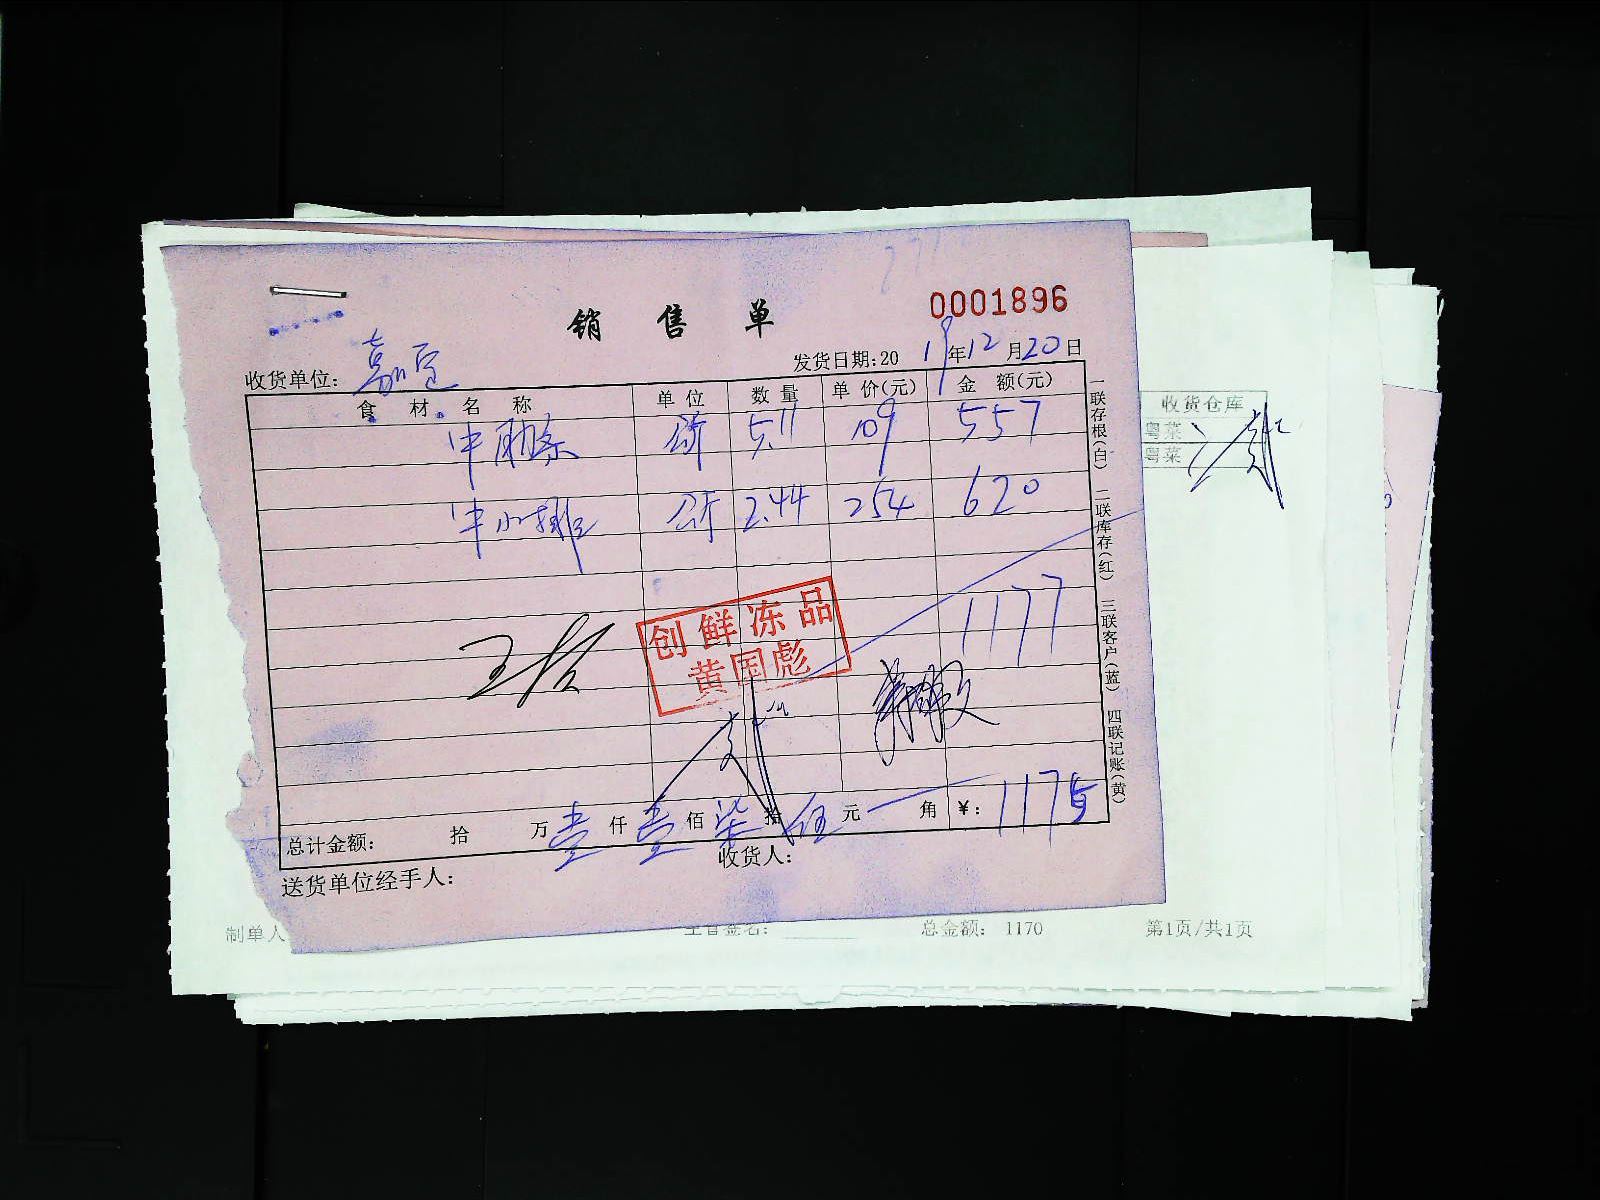 0001896
销售单
发货日期:2019年12月20日
收货单位:
食材名称 单位 数量 单价(元) 金额(元)
牛肋条 公斤 5.11 109 557
牛小排 公斤 2.44 254 620
1177
创鲜冻品
黄国彪
总计金额: 拾 万壹仟壹佰柒拾伍元 角 ¥: 1175
送货单位经手人: 收货人:
一联存根(白) 二联库存(红) 三联客户(蓝) 四联记账(黄)
收货仓库
粤菜
粤菜
制单人
总金额: 1170
第1页/共1页